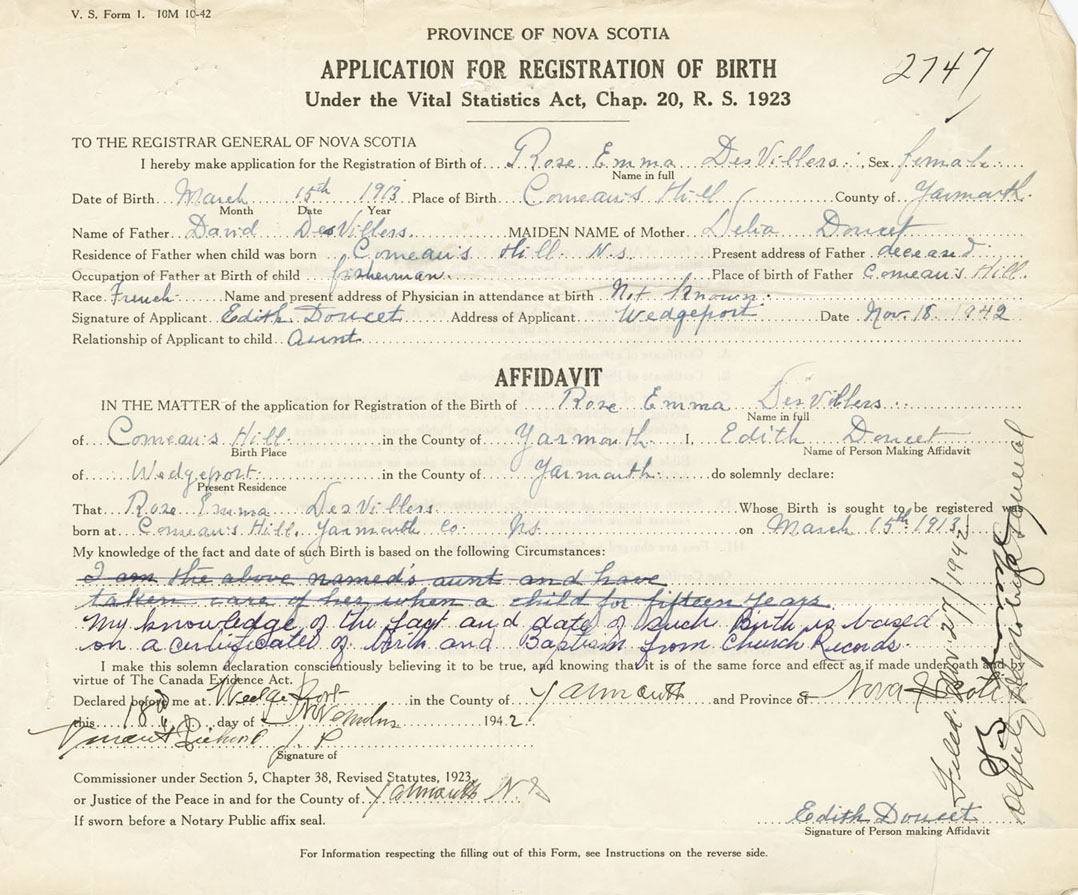 V. S. Form 1. 10M 10-42
PROVINCE OF NOVA SCOTIA
2747
APPLICATION FOR REGISTRATION OF BIRTH
Under the Vital Statistics Act, Chap. 20, R. S. 1923
TO THE REGISTRAR GENERAL OF NOVA SCOTIA
I hereby make application for the Registration of Birth of Rose Emma DesVillers Sex female
Name in full
Date of Birth March 15th 1913 Place of Birth Comeau's Hill County of Yarmouth
Month Date Year
Name of Father David DesVillers. MAIDEN NAME of Mother Delia Doucet
Residence of Father when child was born Comeau's Hill N.S. Present address of Father deceased
Occupation of Father at Birth of child fisherman. Place of birth of Father Comeau's Hill.
Race French Name and present address of Physician in attendance at birth Not known.
Signature of Applicant Edith Doucet Address of Applicant Wedgeport Date Nov. 18 1942
Relationship of Applicant to child Aunt
AFFIDAVIT
IN THE MATTER of the application for Registration of the Birth of Rose Emma DesVillers
Name in full
of Comeau's Hill in the County of Yarmouth I, Edith Doucet
Birth Place Name of Person Making Affidavit
of Wedgeport in the County of Yarmouth do solemnly declare:
Present Residence
That Rose Emma DesVillers Whose Birth is sought to be registered was
born at Comeau's Hill, Yarmouth Co. N.S. on March 15th 1913
My knowledge of the fact and date of such Birth is based on the following Circumstances:
I am the above named's aunt and have
taken care of her when a child for fifteen years
My knowledge of the fact and date of such Birth is based
on a certificate of birth and Baptism from Church Records
I make this solemn declaration conscientiously believing it to be true, and knowing that it is of the same force and effect as if made under oath and by
virtue of The Canada Evidence Act.
Declared before me at Wedgeport in the County of Yarmouth and Province of Nova Scotia
this 18th day of November 1942
J. P.
Signature of
Commissioner under Section 5, Chapter 38, Revised Statutes, 1923,
or Justice of the Peace in and for the County of Yarmouth N S
If sworn before a Notary Public affix seal.
Edith Doucet
Signature of Person making Affidavit
For Information respecting the filling out of this Form, see Instructions on the reverse side.
Filed Nov 27/1942
Deputy Registrar General